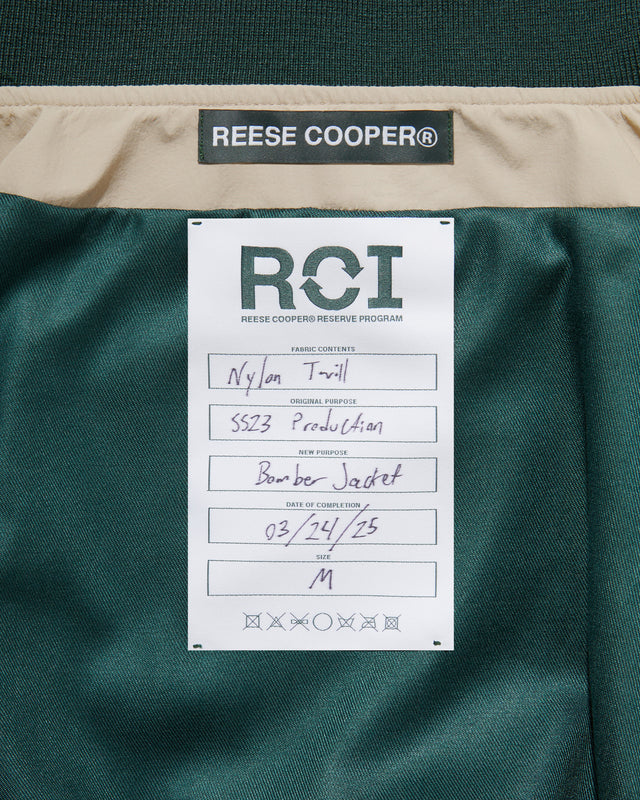 REESE COOPER®
RCI
REESE COOPER® RESERVE PROGRAM
FABRIC CONTENTS
Nylon Twill
ORIGINAL PURPOSE
SS23 Production
NEW PURPOSE
Bomber Jacket
DATE OF COMPLETION
03/24/25
SIZE
M